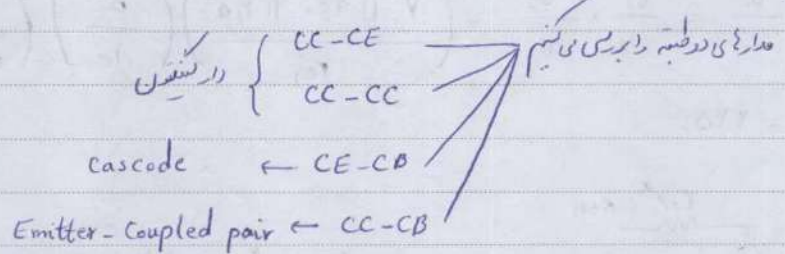 مدارهای دو طبقه را بررسی می کنیم
CC-CE
دارلینگتون
CC-CC
Cascode ← CE-CB
Emitter-Coupled pair ← CC-CB